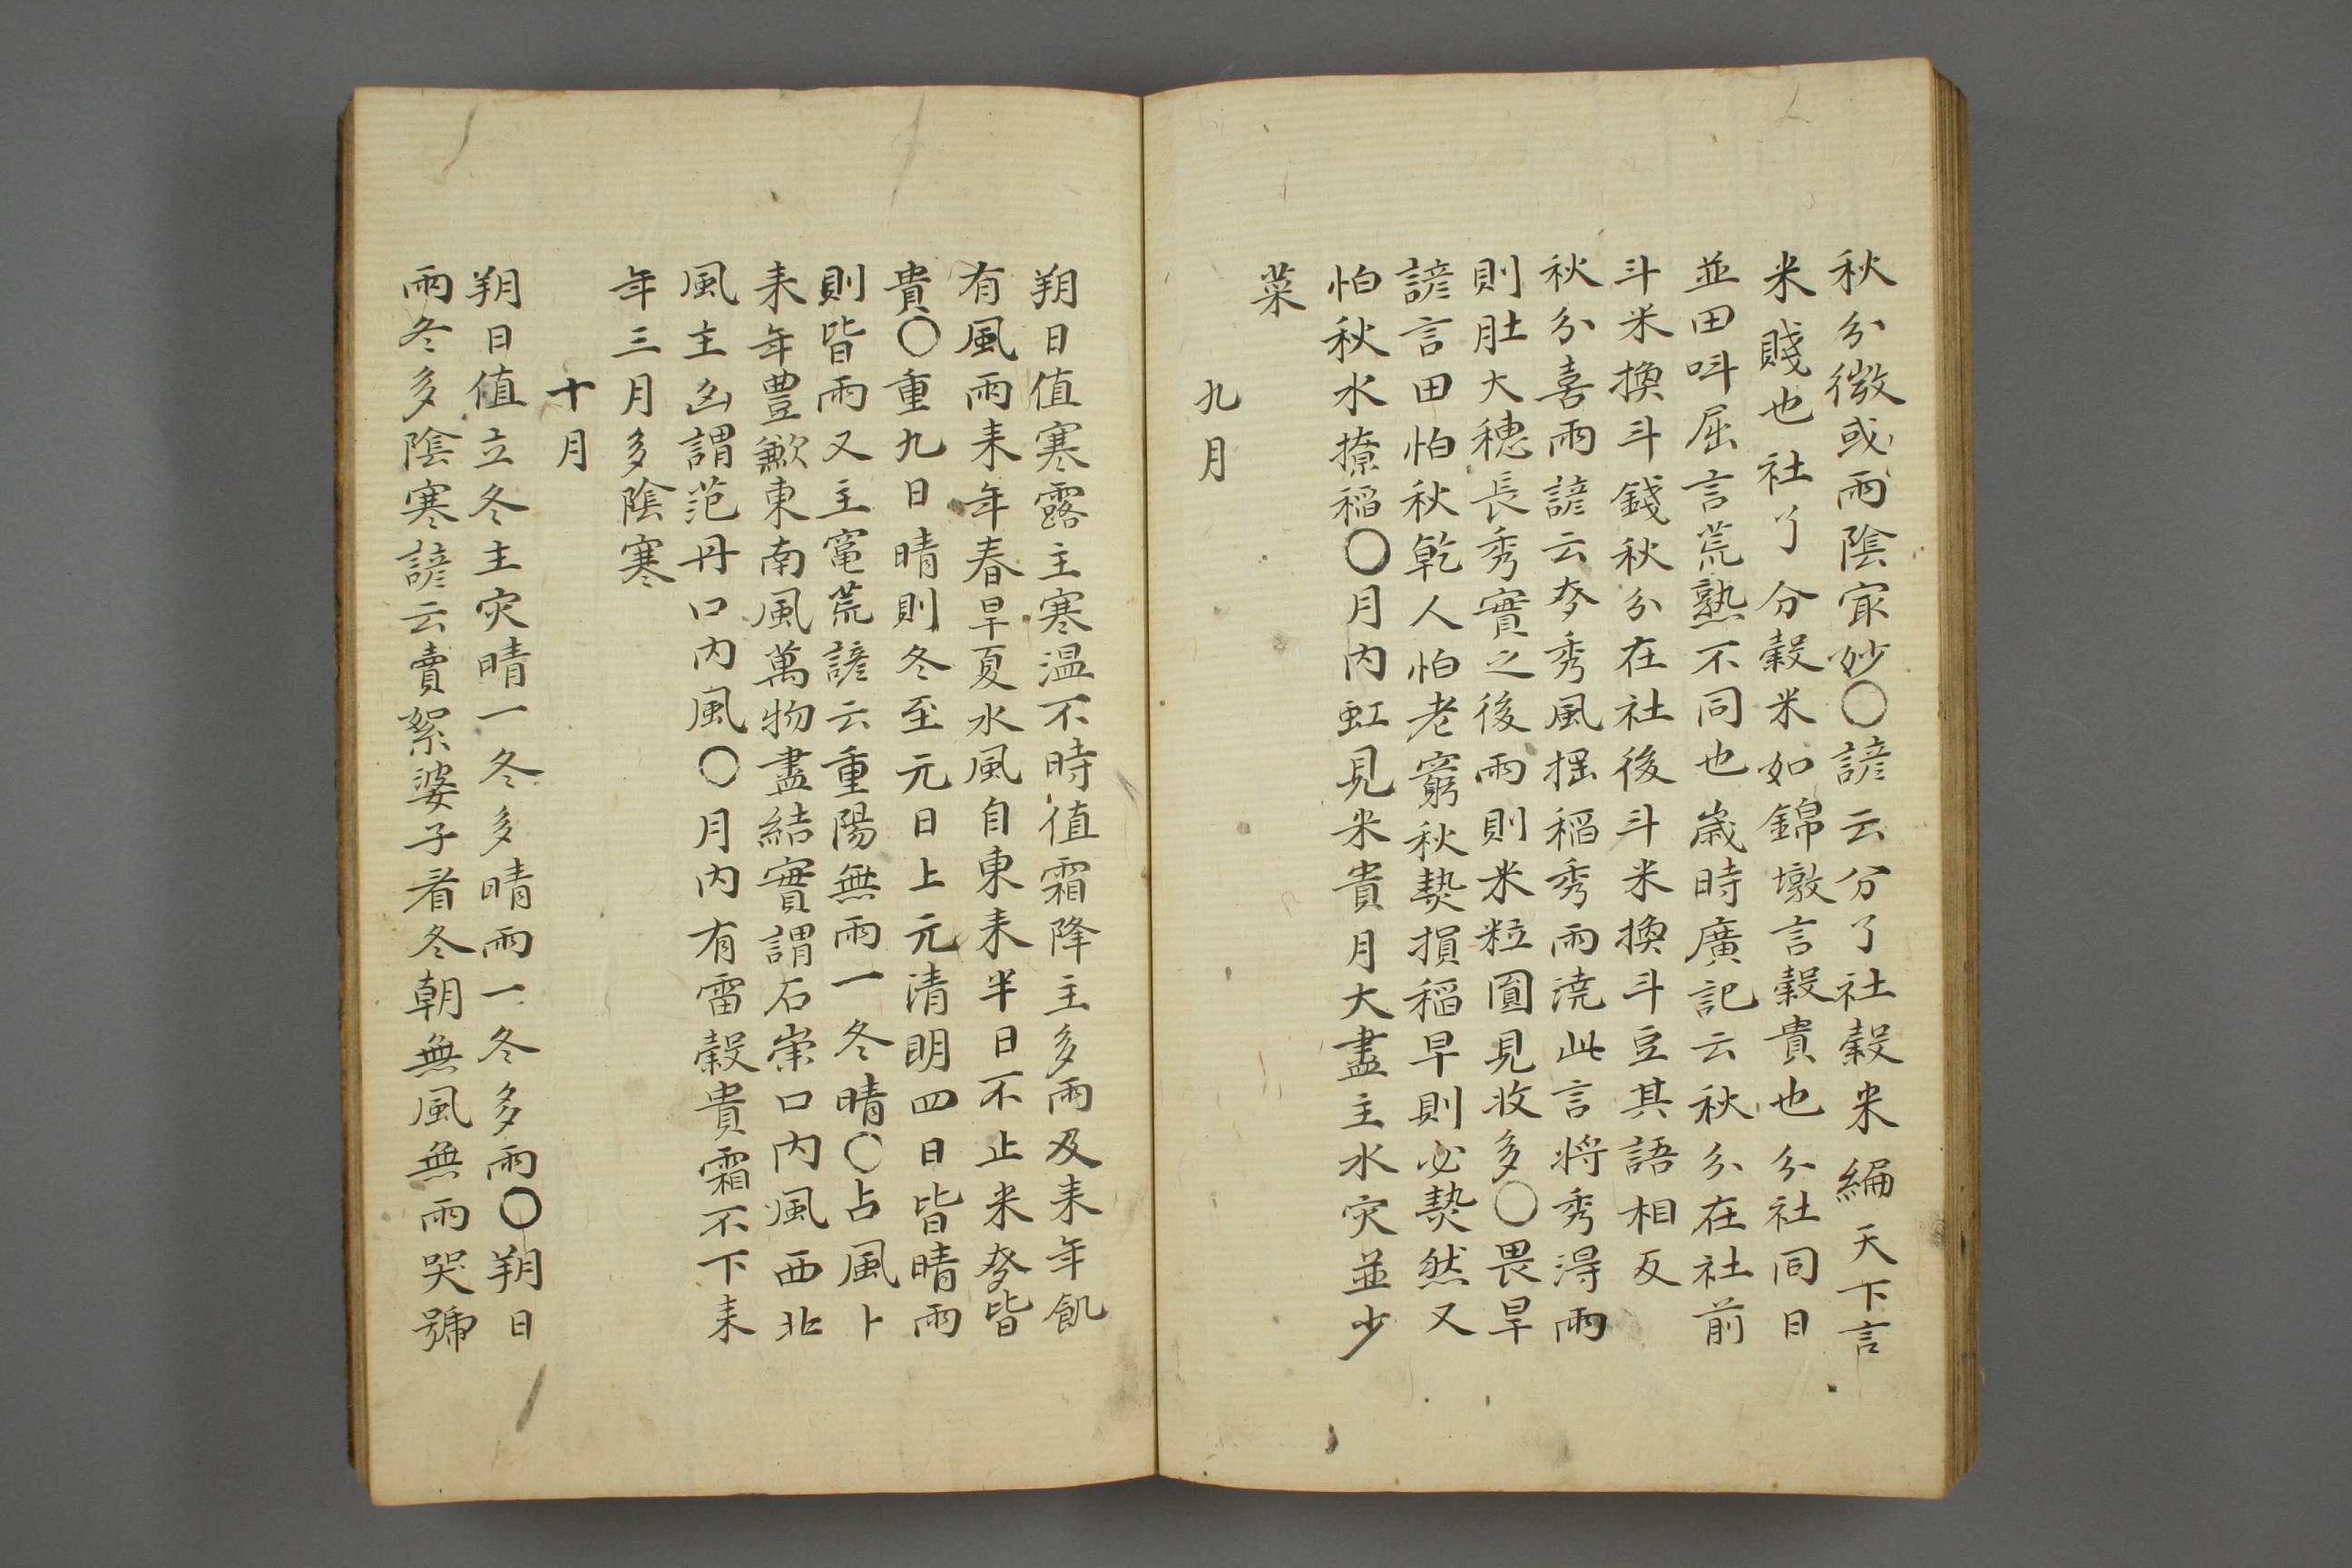 秋分微或雨陰㝡妙〇諺云分了社穀米編天下言
米賤也社了分穀米如錦墩言穀貴也分社同日
並田呌屈言荒熟不同也歲時廣記云秋分在社前
斗米換斗錢秋分在社後斗米換斗豆其語相反
秋分喜雨諺云麥秀風揺稲秀雨澆此言将秀淂雨
則肚大穗長秀實之後雨則米粒圓見收多〇畏旱
諺言田怕秋乾人怕老窮秋𤍠損稲旱則必𤍠然又
怕秋水撩稲〇月内虹見米貴月大盡主水灾並少
菜
九月
朔日值寒露主寒温不時值霜降主多雨及来年飢
有風雨来年春旱夏水風自東来半日不止米麥皆
貴〇重九日晴則冬至元日上元清明四日皆晴雨
則皆雨又主竃荒諺云重陽無雨一冬晴〇占風卜
来年豊歉東南風萬物盡結實謂石崇口内風西北
風主凶謂范丹口内風〇月内有雷穀貴霜不下来
年三月多陰寒
十月
朔日值立冬主灾晴一冬多晴雨一冬多雨〇朔日
雨冬多陰寒諺云賣絮婆子看冬朝無風無雨哭號